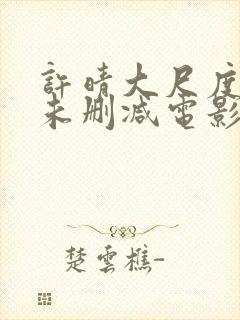 許晴大尺度
未刪減電影
楚雲樵-